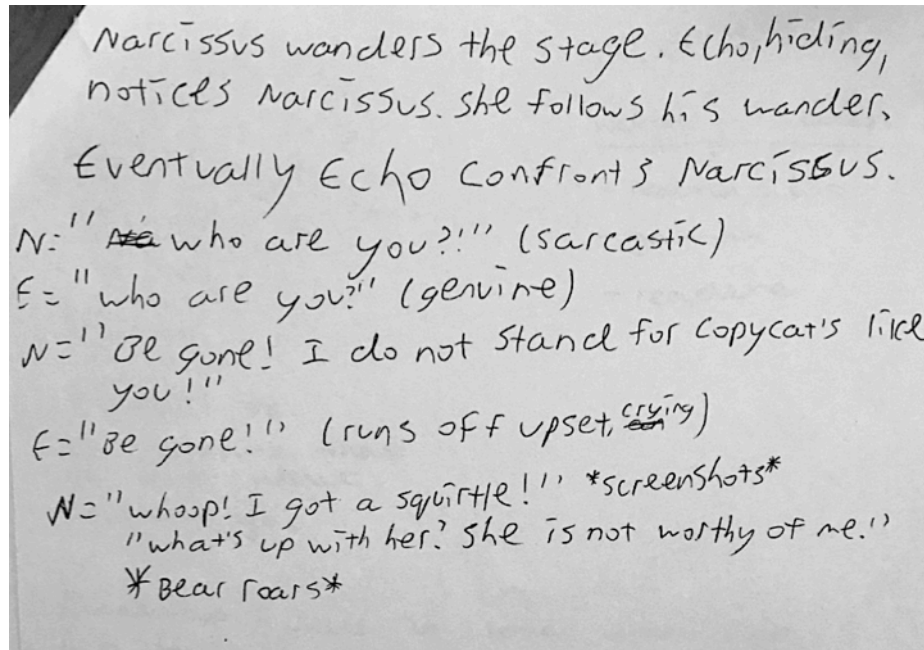 Narcissus wanders the stage. Echo, hiding,
notices Narcissus. she follows his wander.
Eventually Echo confronts Narcissus.
N= " who are you?!" (sarcastic)
E= "who are you?" (genuine)
N= "Be gone! I do not stand for copycat's like
you!"
E= "Be gone!" (runs off upset, crying)
N= "whoop! I got a squirtle!" *screenshots*
"what's up with her? she is not worthy of me."
*Bear roars*